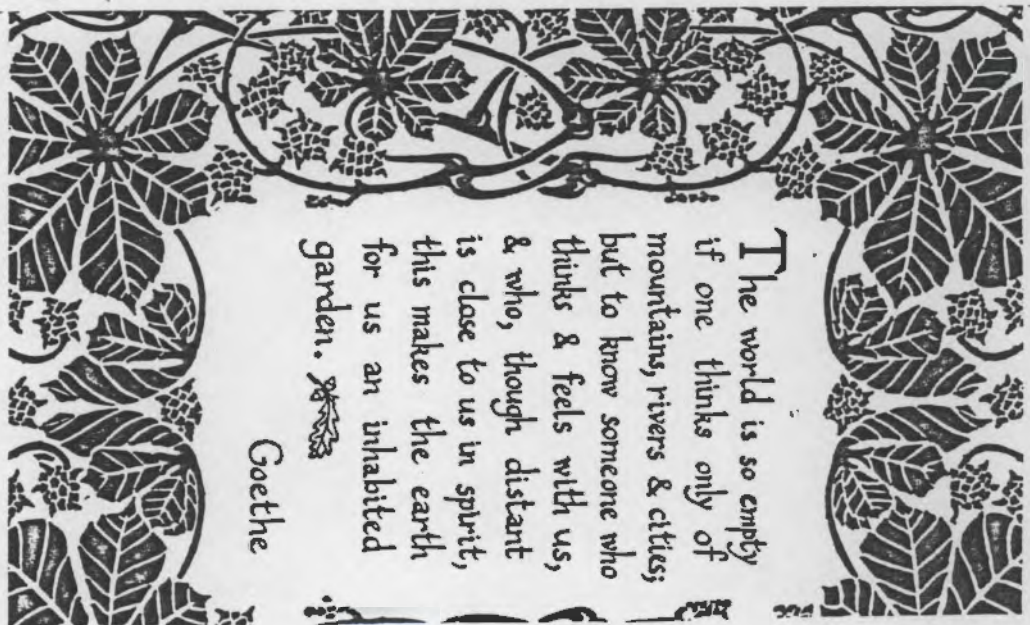 The world is so empty
if one thinks only of
mountains, rivers & cities;
but to know someone who
thinks & feels with us,
& who, though distant
is close to us in spirit,
this makes the earth
for us an inhabited
garden.
Goethe